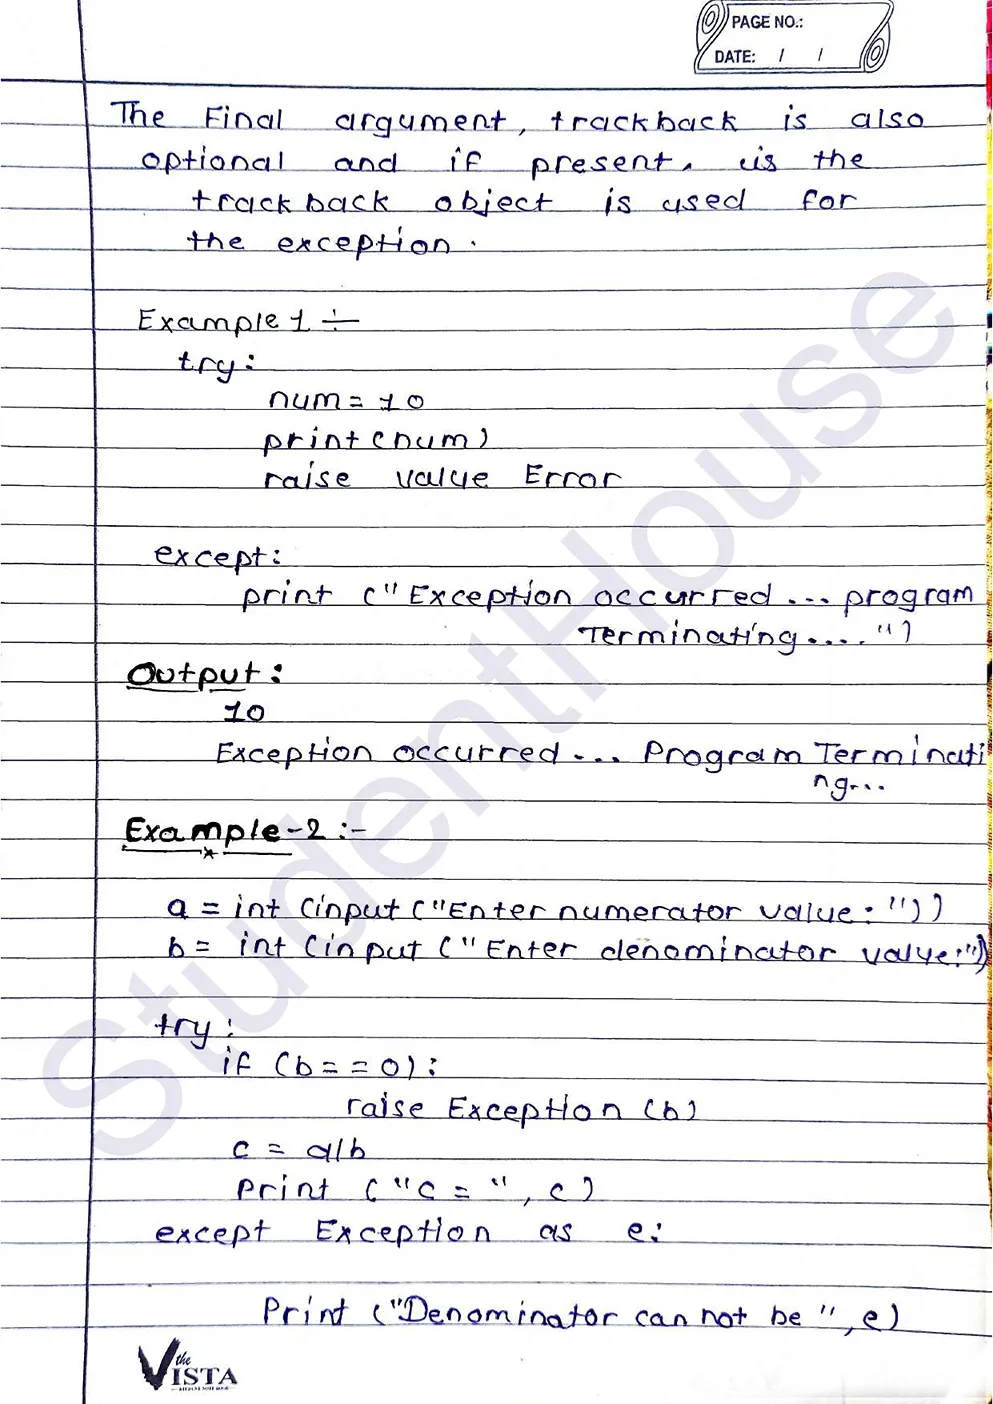 PAGE NO.:
DATE: / /
The Final argument, trackback is also
optional and if present, is the
trackback object is used for
the exception.
Example 1 ÷
try:
num = 10
print(num)
raise value Error
except:
print ("Exception occurred ... program
Terminating....")
Output:
10
Exception occurred ... Program Terminati
ng...
Example-2 :-
a = int (input ("Enter numerator value: "))
b = int (input ("Enter denominator value:"))
try:
if (b == 0):
raise Exception (b)
c = a/b
Print ("c = ", c)
except Exception as e:
Print ("Denominator can not be ", e)
the
VISTA
StudentHouse